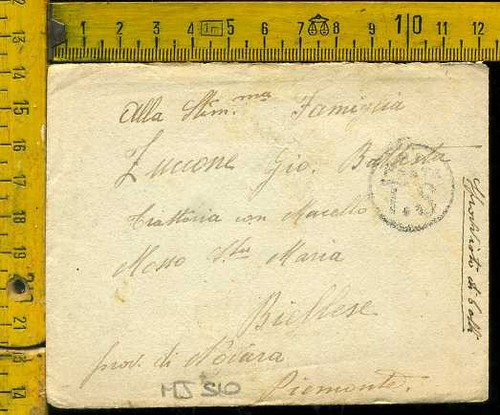 1 2 3 4 1m 5 6 7 8 9 10 11 12
13 14 15 16 17 18 19 11 12 13 14
Alla Stim.ma Famiglia
Zuccone Gio. Battista
trattoria con Macello
Mosso Sta Maria
Biellese
prov. di Novara
Piemonte.
T.S
Sprovvisto di bolli